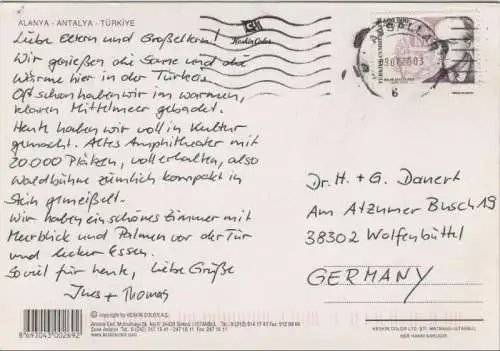 ALANYA - ANTALYA - TÜRKİYE
Liebe Eltern und Großeltern!
Wir genießen die Sonne und die
Wärme hier in der Türkei.
Oft schon haben wir im warmen,
klaren Mittelmeer gebadet.
Heute haben wir voll in Kultur
gemacht. Altes Amphitheater mit
20.000 Plätzen, voll erhalten, also
Waldbühne ziemlich kompakt in
Stein gemeißelt.
Wir haben ein schönes Zimmer mit
Meerblick und Palmen vor der Tür
und lecker Essen.
Soviel für heute, Liebe Grüße
Ines + Thomas
Keskin Color
6
Dr. H. + G. Danert
Am Atzumer Busch 19
38302 Wolfenbüttel
GERMANY
8 693043 002692
© copyright by KESKIN COLOR A.Ş.
www.keskincolor.com
KESKIN COLOR LTD. ŞTİ. MATBAASI-İSTANBUL
HER HAKKI SAKLIDIR.